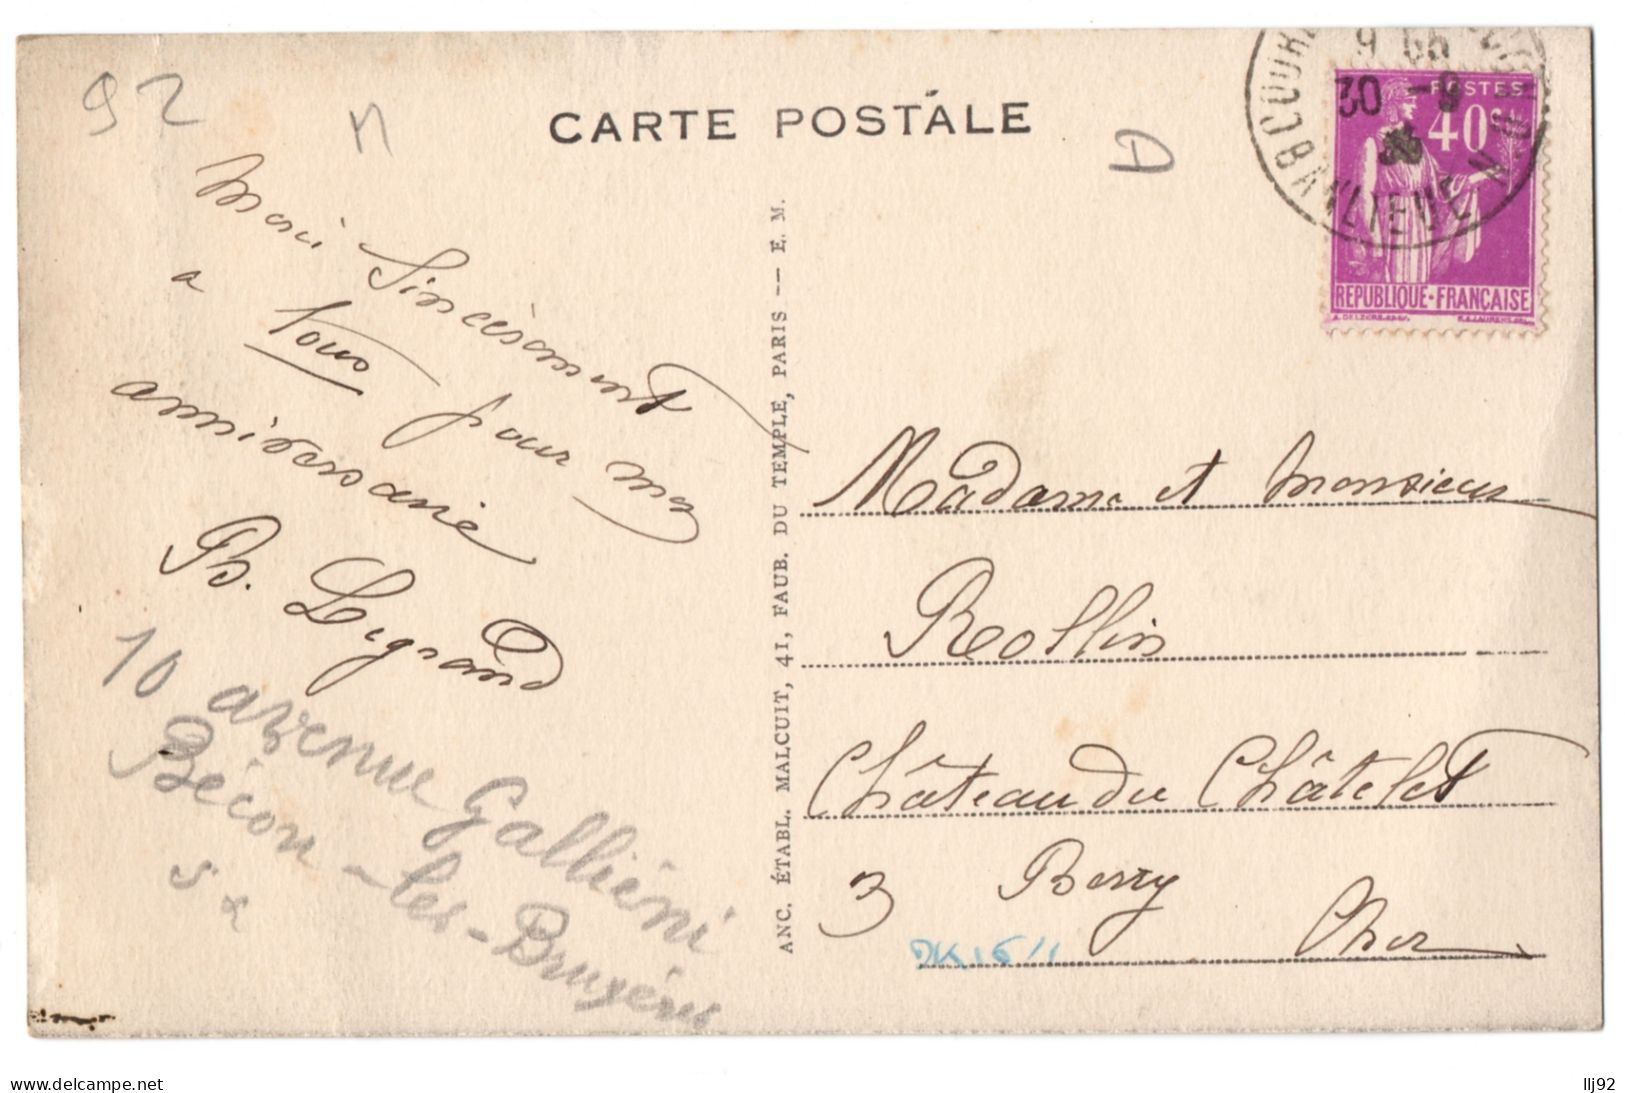 92
n
CARTE POSTALE
D
9 65
30 - 9
36
COURBEVOIE
BANLIEUE N
POSTES
40c
REPUBLIQUE·FRANÇAISE
Merci Sincèrement
a tous pour mon
anniversaire
Ph. Legrand
10 avenue Galliéni
Bécon-les-Bruyères
ANC. ÉTABL. MALCUIT, 41, FAUB. DU TEMPLE, PARIS -- E. M.
Madame et Monsieur
Rollin
Château du Châtelet
3 Berry
Cher
www.delcampe.net
llj92